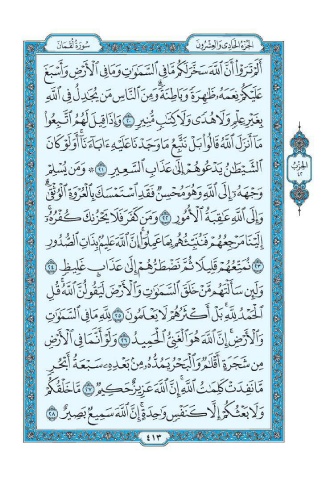 الجزء الحادى والعشرون
سورة لقمان
أَلَمْ تَرَوْا۟ أَنَّ ٱللَّهَ سَخَّرَ لَكُم مَّا فِى ٱلسَّمَـٰوَٰتِ وَمَا فِى ٱلْأَرْضِ وَأَسْبَغَ
عَلَيْكُمْ نِعَمَهُۥ ظَـٰهِرَةً وَبَاطِنَةً ۗ وَمِنَ ٱلنَّاسِ مَن يُجَـٰدِلُ فِى ٱللَّهِ
بِغَيْرِ عِلْمٍ وَلَا هُدًى وَلَا كِتَـٰبٍ مُّنِيرٍ ٢٠ وَإِذَا قِيلَ لَهُمُ ٱتَّبِعُوا۟
مَآ أَنزَلَ ٱللَّهُ قَالُوا۟ بَلْ نَتَّبِعُ مَا وَجَدْنَا عَلَيْهِ ءَابَآءَنَآ ۚ أَوَلَوْ كَانَ
ٱلشَّيْطَـٰنُ يَدْعُوهُمْ إِلَىٰ عَذَابِ ٱلسَّعِيرِ ٢١ ۞ وَمَن يُسْلِمْ
وَجْهَهُۥٓ إِلَى ٱللَّهِ وَهُوَ مُحْسِنٌ فَقَدِ ٱسْتَمْسَكَ بِٱلْعُرْوَةِ ٱلْوُثْقَىٰ ۗ
وَإِلَى ٱللَّهِ عَـٰقِبَةُ ٱلْأُمُورِ ٢٢ وَمَن كَفَرَ فَلَا يَحْزُنكَ كُفْرُهُۥٓ ۚ
إِلَيْنَا مَرْجِعُهُمْ فَنُنَبِّئُهُم بِمَا عَمِلُوٓا۟ ۚ إِنَّ ٱللَّهَ عَلِيمٌۢ بِذَاتِ ٱلصُّدُورِ
٢٣ نُمَتِّعُهُمْ قَلِيلًا ثُمَّ نَضْطَرُّهُمْ إِلَىٰ عَذَابٍ غَلِيظٍ ٢٤
وَلَئِن سَأَلْتَهُم مَّنْ خَلَقَ ٱلسَّمَـٰوَٰتِ وَٱلْأَرْضَ لَيَقُولُنَّ ٱللَّهُ ۚ قُلِ
ٱلْحَمْدُ لِلَّهِ ۚ بَلْ أَكْثَرُهُمْ لَا يَعْلَمُونَ ٢٥ لِلَّهِ مَا فِى ٱلسَّمَـٰوَٰتِ
وَٱلْأَرْضِ ۚ إِنَّ ٱللَّهَ هُوَ ٱلْغَنِىُّ ٱلْحَمِيدُ ٢٦ وَلَوْ أَنَّمَا فِى ٱلْأَرْضِ
مِن شَجَرَةٍ أَقْلَـٰمٌ وَٱلْبَحْرُ يَمُدُّهُۥ مِنۢ بَعْدِهِۦ سَبْعَةُ أَبْحُرٍ
مَّا نَفِدَتْ كَلِمَـٰتُ ٱللَّهِ ۗ إِنَّ ٱللَّهَ عَزِيزٌ حَكِيمٌ ٢٧ مَّا خَلْقُكُمْ
وَلَا بَعْثُكُمْ إِلَّا كَنَفْسٍ وَٰحِدَةٍ ۗ إِنَّ ٱللَّهَ سَمِيعٌۢ بَصِيرٌ ٢٨
الحزب
٤٢
٤١٣